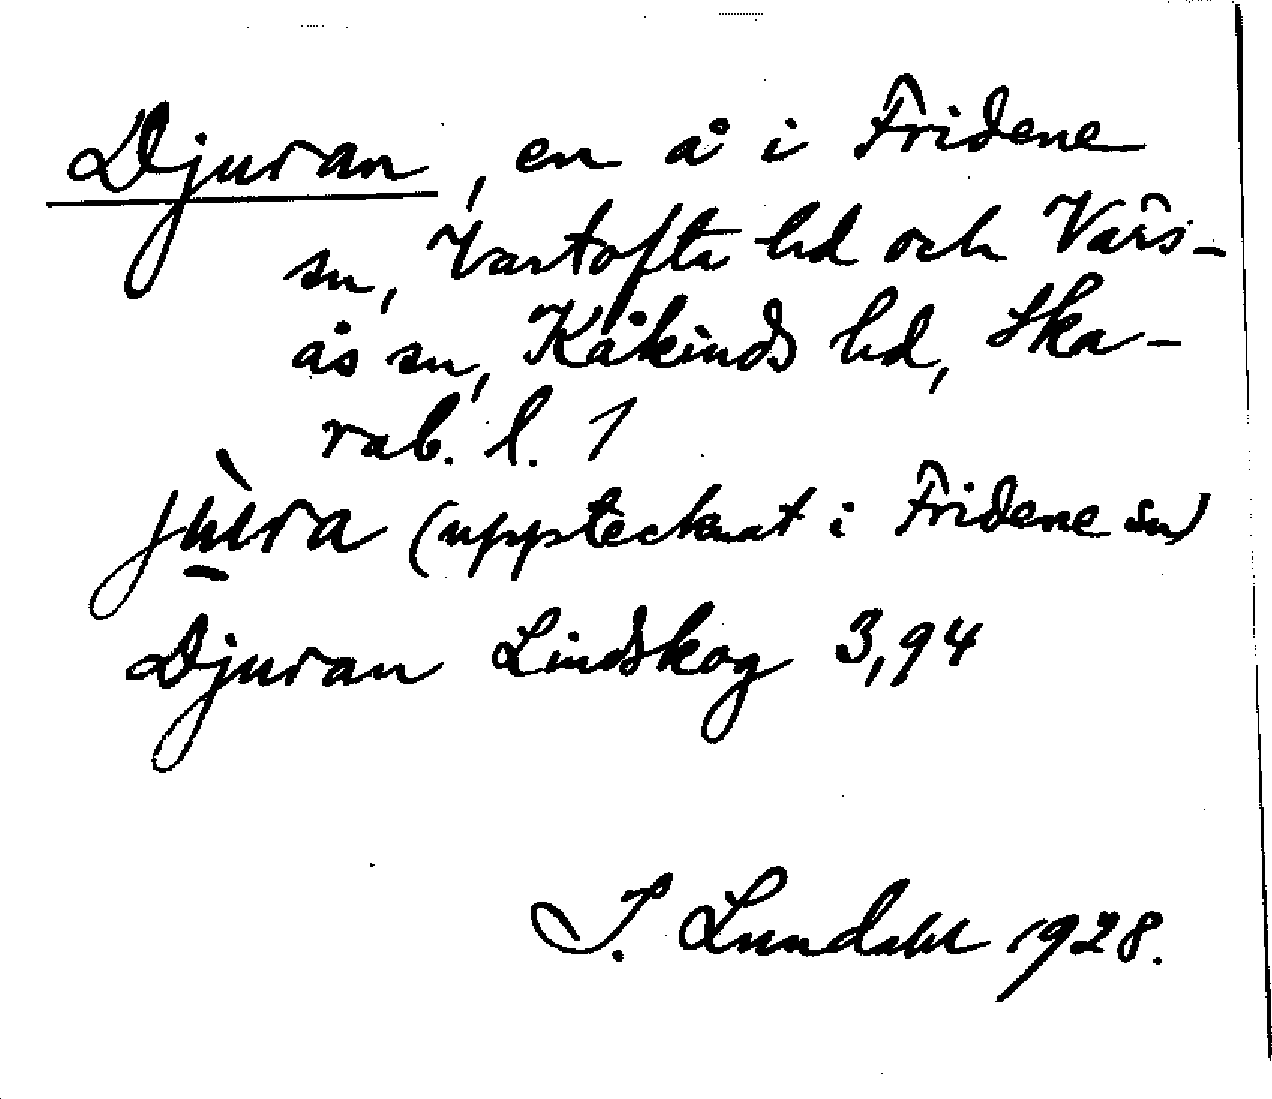 Djuran, en å i Fridene
sn, Vartofta hd och Värs-
ås sn, Kåkinds hd, Ska-
rab. l. 1
jùra (upptecknat i Fridene sn)
Djuran Lindskog 3,94
I. Lundahl 1928.